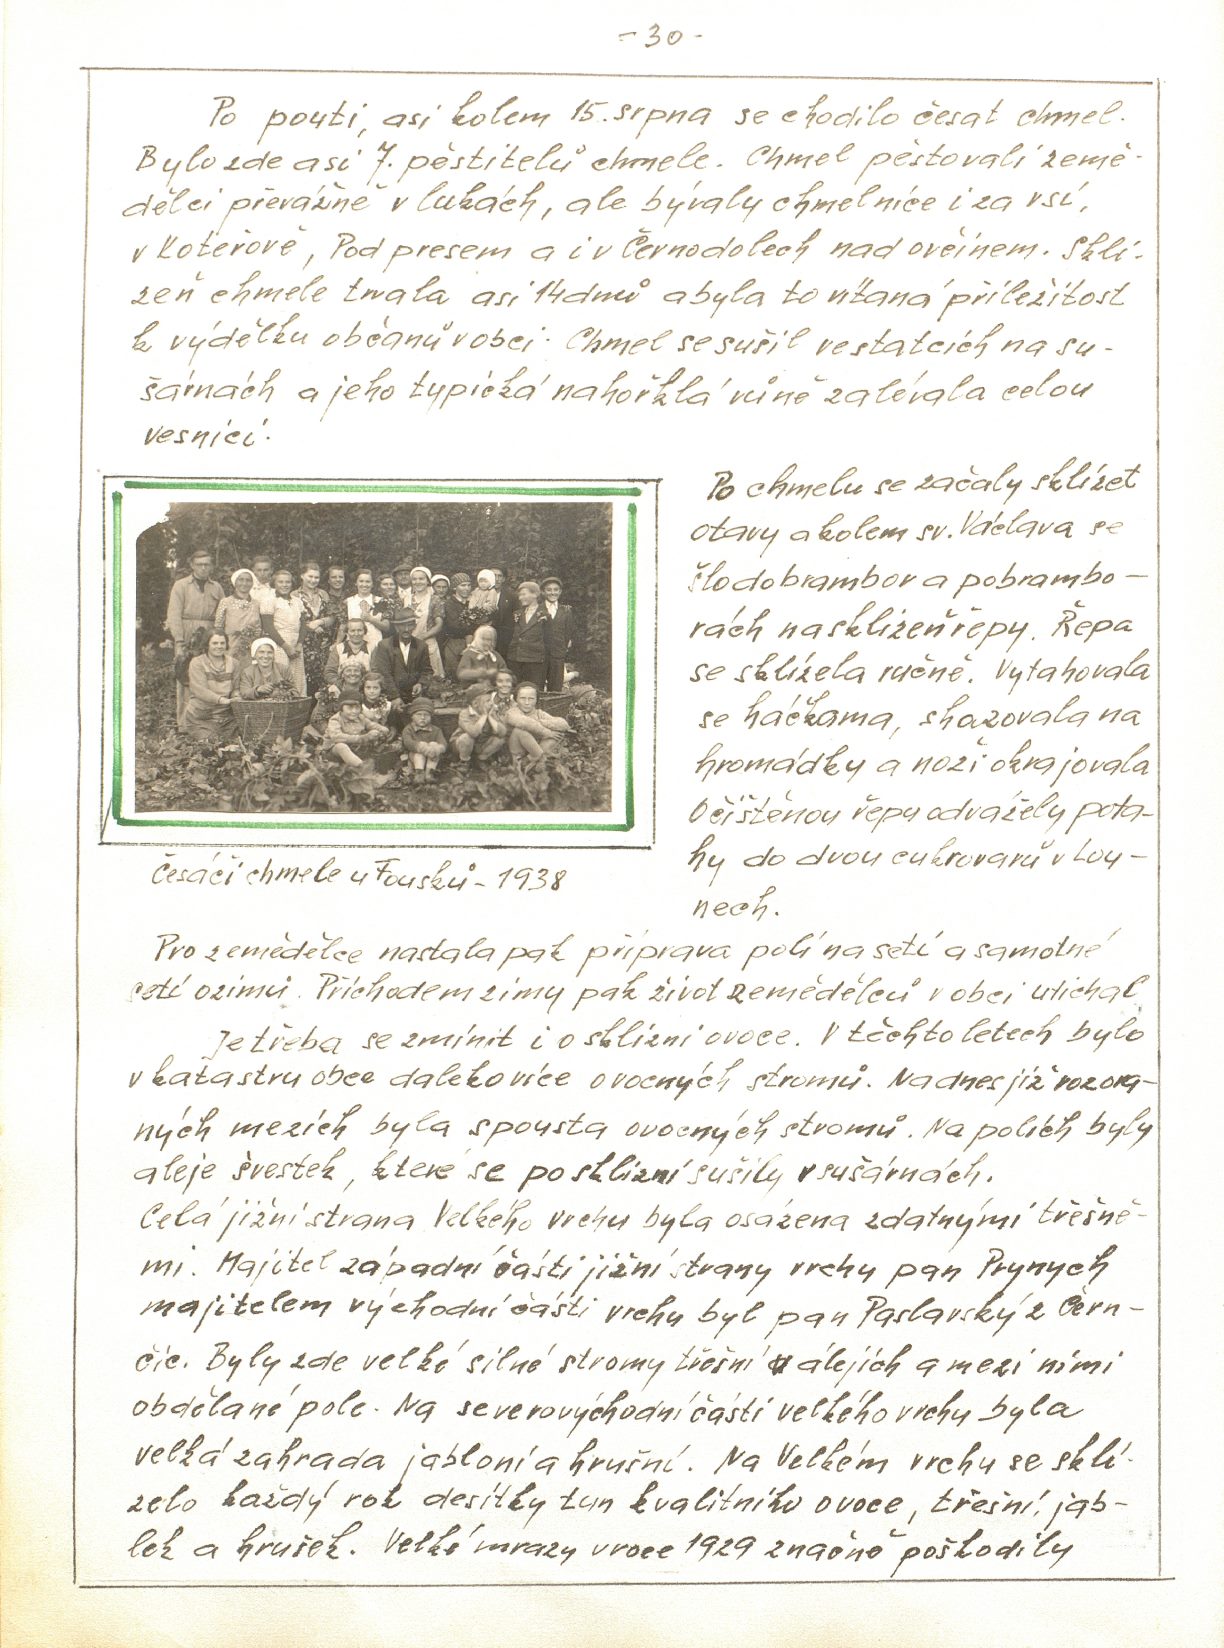 - 30 -
Po pouti, asi kolem 15. srpna se chodilo česat chmel.
Bylo zde asi 7. pěstitelů chmele. Chmel pěstovali země-
dělci převážně v lukách, ale bývaly chmelnice i za vsí,
v Kotěrově, Pod presem a i v Černodolech nad ovčínem. Skli-
zeň chmele trvala asi 14 dnů a byla to vítaná příležitost
k výdělku občanů v obci. Chmel se sušil ve statcích na su-
šárnách a jeho typická nahořklá vůně zalévala celou
vesnici.
Po chmelu se začaly sklízet
otavy a kolem sv. Václava se
šlo do brambor a po brambo-
rách na sklizeň řepy. Řepa
se sklízela ručně. Vytahovala
se háčkama, shazovala na
hromádky a noži okrajovala
Očištěnou řepu odvážely pota-
hy do dvou cukrovarů v Lou-
nech.
Česáči chmele u Fousků - 1938
Pro zemědělce nastala pak příprava polí na setí a samotné
setí ozimů. Příchodem zimy pak život zemědělců v obci utichal
Je třeba se zmínit i o sklizni ovoce. V těchto letech bylo
v katastru obce daleko více ovocných stromů. Na dnes již rozora-
ných mezích byla spousta ovocných stromů. Na polích byly
aleje švestek, které se po sklizni sušily v sušárnách.
Celá jižní strana Velkého vrchu byla osázena zdatnými třešně-
mi. Majitel západní části jižní strany vrchu pan Prynych
majitelem východní části vrchu byl pan Paslavský z Čern-
čic. Byly zde velké silné stromy třešní v álejích a mezi nimi
obdělané pole. Na severovýchodní části velkého vrchu byla
velká zahrada jabloní a hrušní. Na Velkém vrchu se sklí-
zelo každý rok desítky tun kvalitního ovoce, třešní, jab-
lek a hrušek. Velké mrazy v roce 1929 značně poškodily